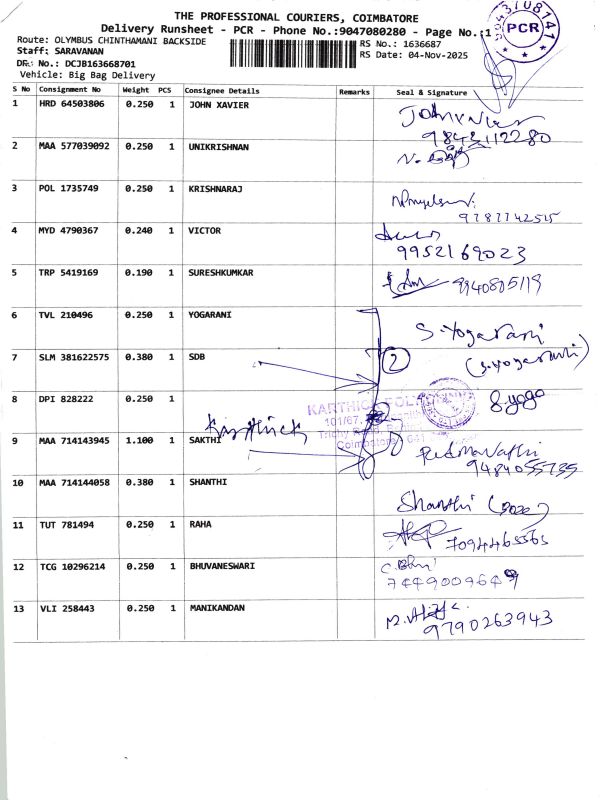 THE PROFESSIONAL COURIERS, COIMBATORE
Delivery Runsheet - PCR - Phone No.:9047080280 - Page No.:1
Route: OLYMBUS CHINTHAMANI BACKSIDE
RS No.: 1636687
Staff: SARAVANAN
RS Date: 04-Nov-2025
DR No.: DCJB163668701
Vehicle: Big Bag Delivery
PCR
S No Consignment No Weight PCS Consignee Details Remarks Seal & Signature
1 HRD 64503806 0.250 1 JOHN XAVIER
9843112280
2 MAA 577039092 0.250 1 UNIKRISHNAN
3 POL 1735749 0.250 1 KRISHNARAJ
9787742515
4 MYD 4790367 0.240 1 VICTOR
9952169023
5 TRP 5419169 0.190 1 SURESHKUMKAR 9940805119
6 TVL 210496 0.250 1 YOGARANI S.Yogarani
(S.yogarani)
7 SLM 381622575 0.380 1 SDB 2
8 DPI 828222 0.250 1 S.yoga
KARTHICK
101/67,
Coimbatore - 641
Karthick
9 MAA 714143945 1.100 1 SAKTHI Padmavathi
9484055735
10 MAA 714144058 0.380 1 SHANTHI Shanthi
11 TUT 781494 0.250 1 RAHA 7094465565
12 TCG 10296214 0.250 1 BHUVANESWARI
7449009649
13 VLI 258443 0.250 1 MANIKANDAN
9790263943